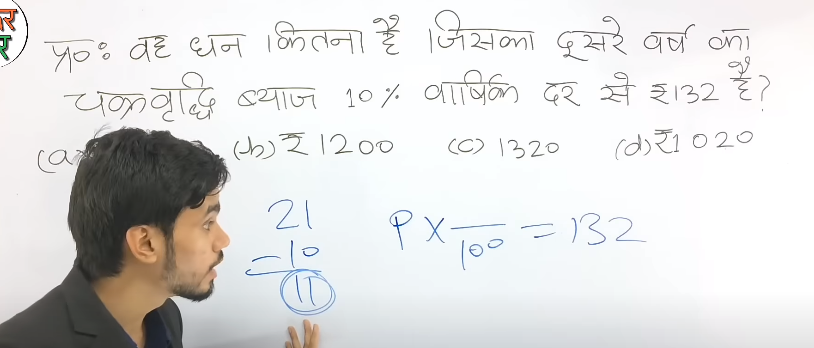 र
र
प्र०ः वह धन कितना है जिसका दूसरे वर्ष का
चक्रवृद्धि ब्याज 10% वार्षिक दर से ₹132 है?
(a (b) ₹1200 (c) 1320 (d) ₹1020
21
-10
11
P × /100 = 132